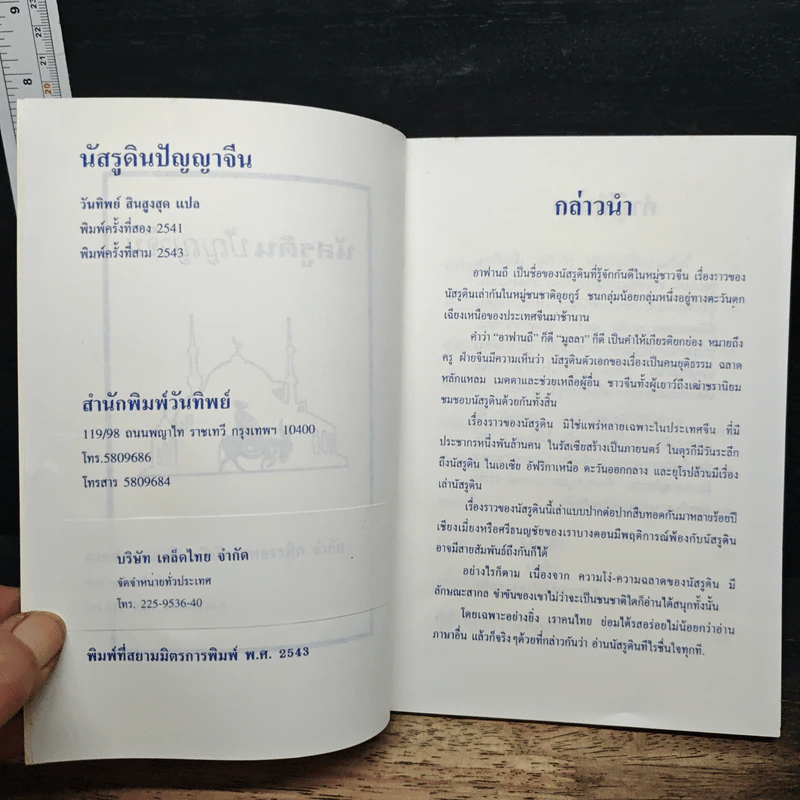 นัสรูดินปัญญาจีน
วันทิพย์ สินสูงสุด แปล
พิมพ์ครั้งที่สอง 2541
พิมพ์ครั้งที่สาม 2543
สำนักพิมพ์วันทิพย์
119/98 ถนนพญาไท ราชเทวี กรุงเทพฯ 10400
โทร.5809686
โทรสาร 5809684
บริษัท เคล็ดไทย จำกัด
จัดจำหน่ายทั่วประเทศ
โทร. 225-9536-40
พิมพ์ที่สยามมิตรการพิมพ์ พ.ศ. 2543
กล่าวนำ
อาฟานถี เป็นชื่อของนัสรูดินที่รู้จักกันดีในหมู่ชาวจีน เรื่องราวของ
นัสรูดินเล่ากันในหมู่ชนชาติอุยกูร์ ชนกลุ่มน้อยกลุ่มหนึ่งอยู่ทางตะวันตก
เฉียงเหนือของประเทศจีนมาช้านาน
คำว่า “อาฟานถี” ก็ดี “มูลลา” ก็ดี เป็นคำให้เกียรติยกย่อง หมายถึง
ครู ฝ่ายจีนมีความเห็นว่า นัสรูดินตัวเอกของเรื่องเป็นคนยุติธรรม ฉลาด
หลักแหลม เมตตาและช่วยเหลือผู้อื่น ชาวจีนทั้งผู้เยาว์ถึงเฒ่าชรานิยม
ชมชอบนัสรูดินด้วยกันทั้งสิ้น
เรื่องราวของนัสรูดิน มิใช่แพร่หลายเฉพาะในประเทศจีน ที่มี
ประชากรหนึ่งพันล้านคน ในรัสเซียสร้างเป็นภายนตร์ ในตุรกีมีวันระลึก
ถึงนัสรูดิน ในเอเซีย อัฟริกาเหนือ ตะวันออกกลาง และยุโรปล้วนมีเรื่อง
เล่านัสรูดิน
เรื่องราวของนัสรูดินนี้เล่าแบบปากต่อปากสืบทอดกันมาหลายร้อยปี
เชียงเมี่ยงหรือศรีธนญชัยของเราบางตอนมีพฤติการณ์พ้องกับนัสรูดิน
อาจมีสายสัมพันธ์ถึงกันก็ได้
อย่างไรก็ตาม เนื่องจาก ความโง่-ความฉลาดของนัสรูดิน มี
ลักษณะสากล ขำขันของเขาไม่ว่าจะเป็นชนชาติใดก็อ่านได้สนุกทั้งนั้น
โดยเฉพาะอย่างยิ่ง เราคนไทย ย่อมได้รสอร่อยไม่น้อยกว่าอ่าน
ภาษาอื่น แล้วก็จริงๆด้วยที่กล่าวกันว่า อ่านนัสรูดินทีไรชื่นใจทุกที.